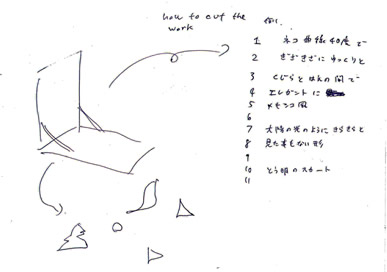 how to cut the
work
例.
1 ネコ曲線40度で
2 ぎざぎざにゆっくりと
3 くじらとほんの間で
4 エレガントに
5 メキシコ風
6
7 太陽の光のようにきらきらと
8 見た事もない形
9
10 とう明のスカート
11